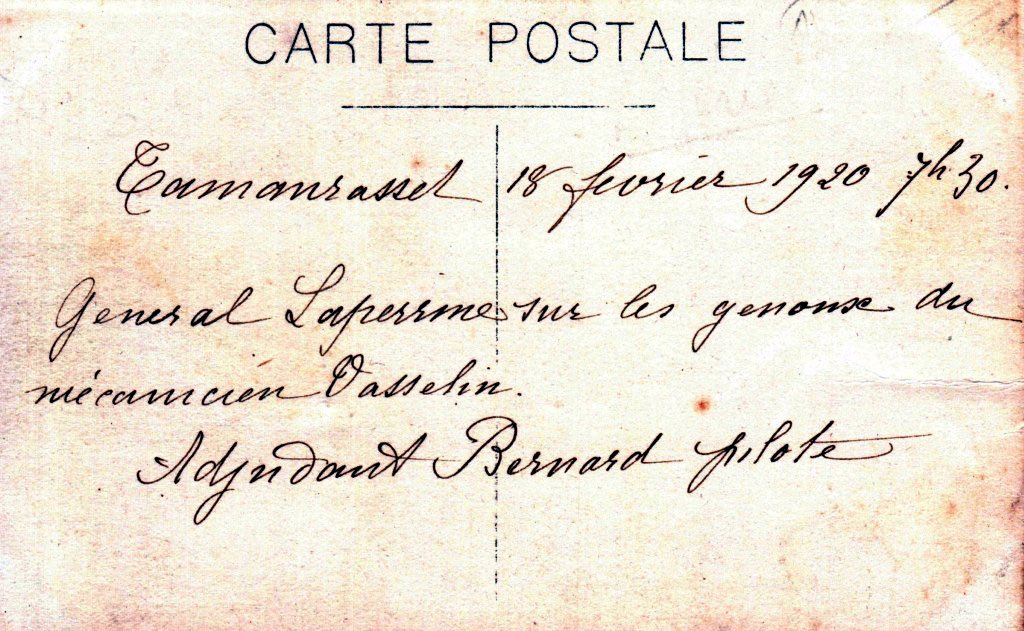 CARTE POSTALE
Tamanrasset 18 fevrier 1920 7h30.
General Laperrine sur les genoux du
mécanicien Vasselin.
Adjudant Bernard pilote